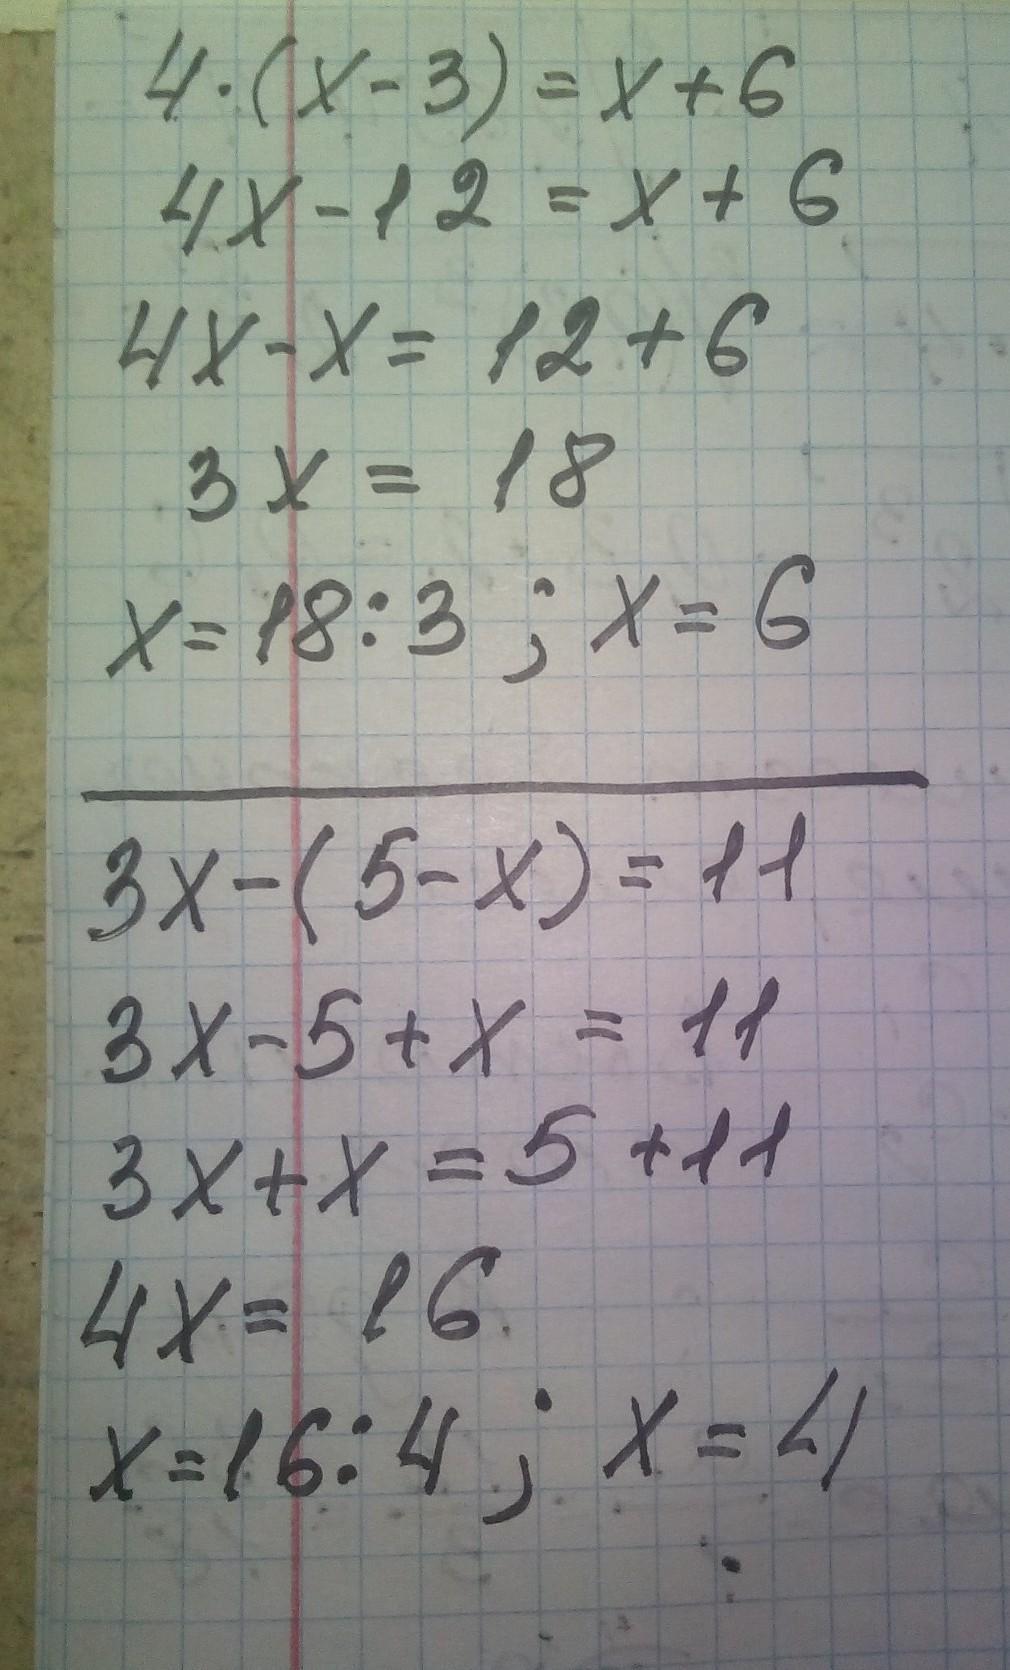 4·(x-3)=x+6
4x-12=x+6
4x-x=12+6
3x=18
x=18:3; x=6
3x-(5-x)=11
3x-5+x=11
3x+x=5+11
4x=16
x=16:4; x=4